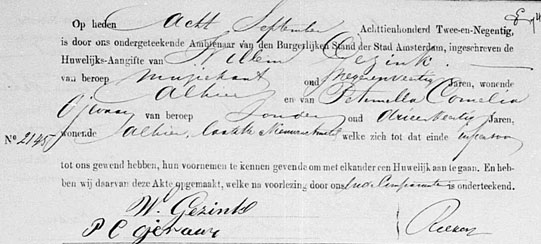 Op heden acht September Achttienhonderd Twee-en-Negentig,
is door ons ondergeteekende Ambtenaar van den Burgerlijken Stand der Stad Amsterdam, ingeschreven de
Huwelijks-Aangifte van Willem Gezink
van beroep muzikant oud Jaren, wonende
alhier en van Petronella Cornelia
van beroep zonder oud Jaren,
No 2145 wonende alhier, laatste welke zich tot dat einde in persoon
tot ons gewend hebben, hun voornemen te kennen gevende om met elkander een Huwelijk aan te gaan. En heb-
ben wij daarvan deze Akte opgemaakt, welke na voorlezing door ons en de Comparanten is onderteekend.
W. Gezink
P C